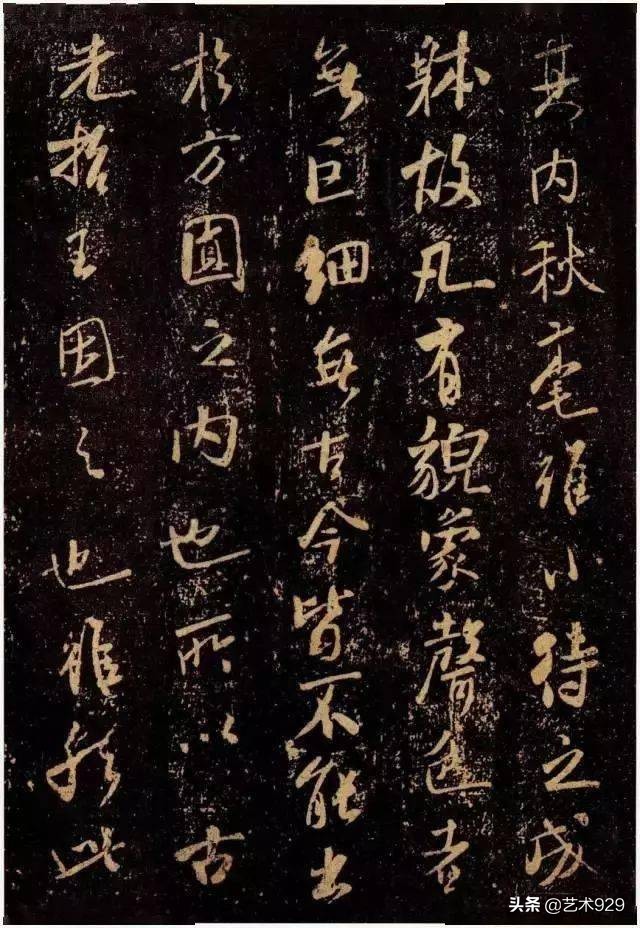 其内秋毫雖小待之成
躰故凡有貌象聲色者
無巨細無古今皆不能出
於方圓之内也所以古
先哲王因之也雖然此
头条 @艺术929